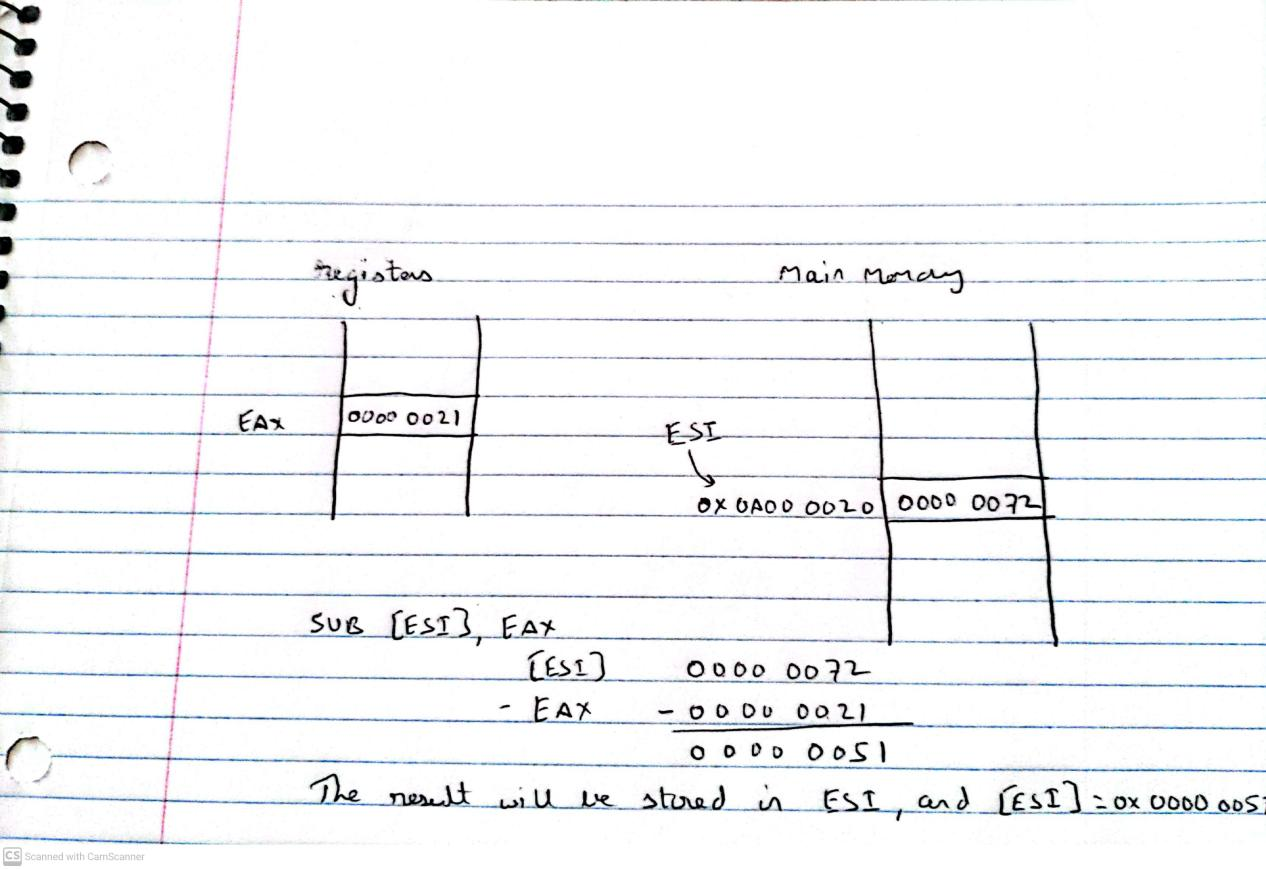 registers Main Memory
EAX 0000 0021
ESI
0X 0A00 0020 0000 0072
SUB [ESI], EAX
[ESI] 0000 0072
- EAX - 0000 0021
0000 0051
The result will be stored in ESI, and [ESI] = 0X 0000 0051
CS Scanned with CamScanner